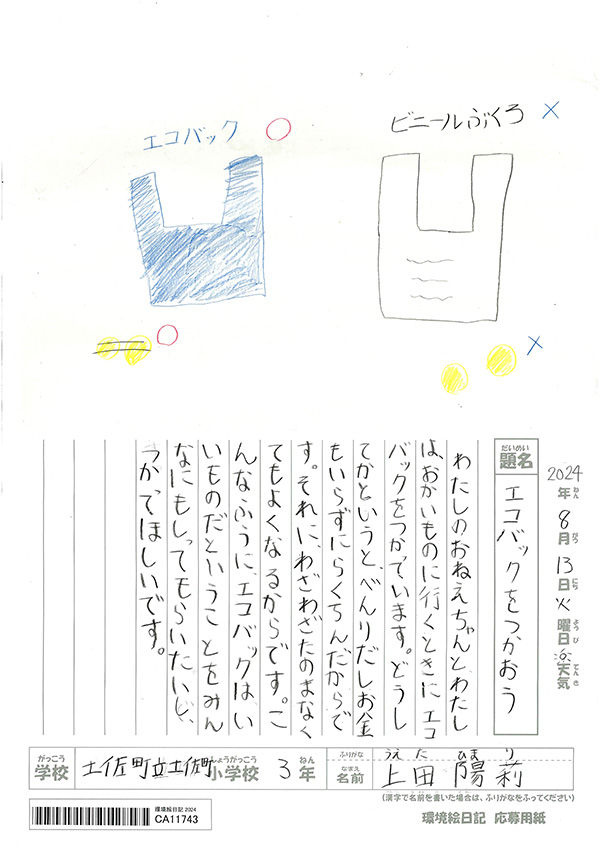 エコバック
ビニールぶくろ
だいめい
題名
エコバックをつかおう
2024年 8月 13日 火曜日 天気
ねん
がつ
にち
ようび
てんき
わたしのおねえちゃんとわたし
は、おかいものに行くときにエコ
バックをつかています。どうし
てかというと、べんりだしお金
もいらずにらくちんだからで
す。それに、わざわざたのまなく
てもよくなるからです。こ
んなふうに、エコバックはい
いものだということをみん
なにもしってもらいたいし、
つかてほしいです。
がっこう
学校
しょうがっこう
土佐町立土佐町小学校
ねん
3年
ふりがな
うえた ひまり
なまえ
名前
上田 陽莉
(漢字で名前を書いた場合は、ふりがなをふってください)
環境絵日記 2024
CA11743
環境絵日記 応募用紙